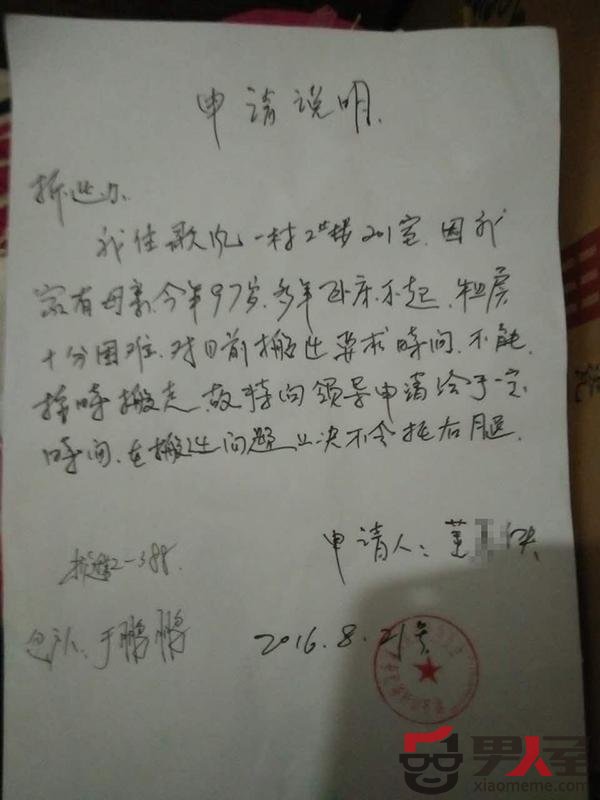 申请说明.
拆迁办.
我住歌风一村2#楼201室.因我
家有母亲今年97岁.多年卧床不起.租房
十分困难.对目前搬迁要求時间.不能
按時搬走.故特向领导申请给予一定
時间.在搬迁问题上决不会拖后腿.
申请人:董
2-388.
于鹏鹏
2016.8.21号
男人屋
xiaomeme.com